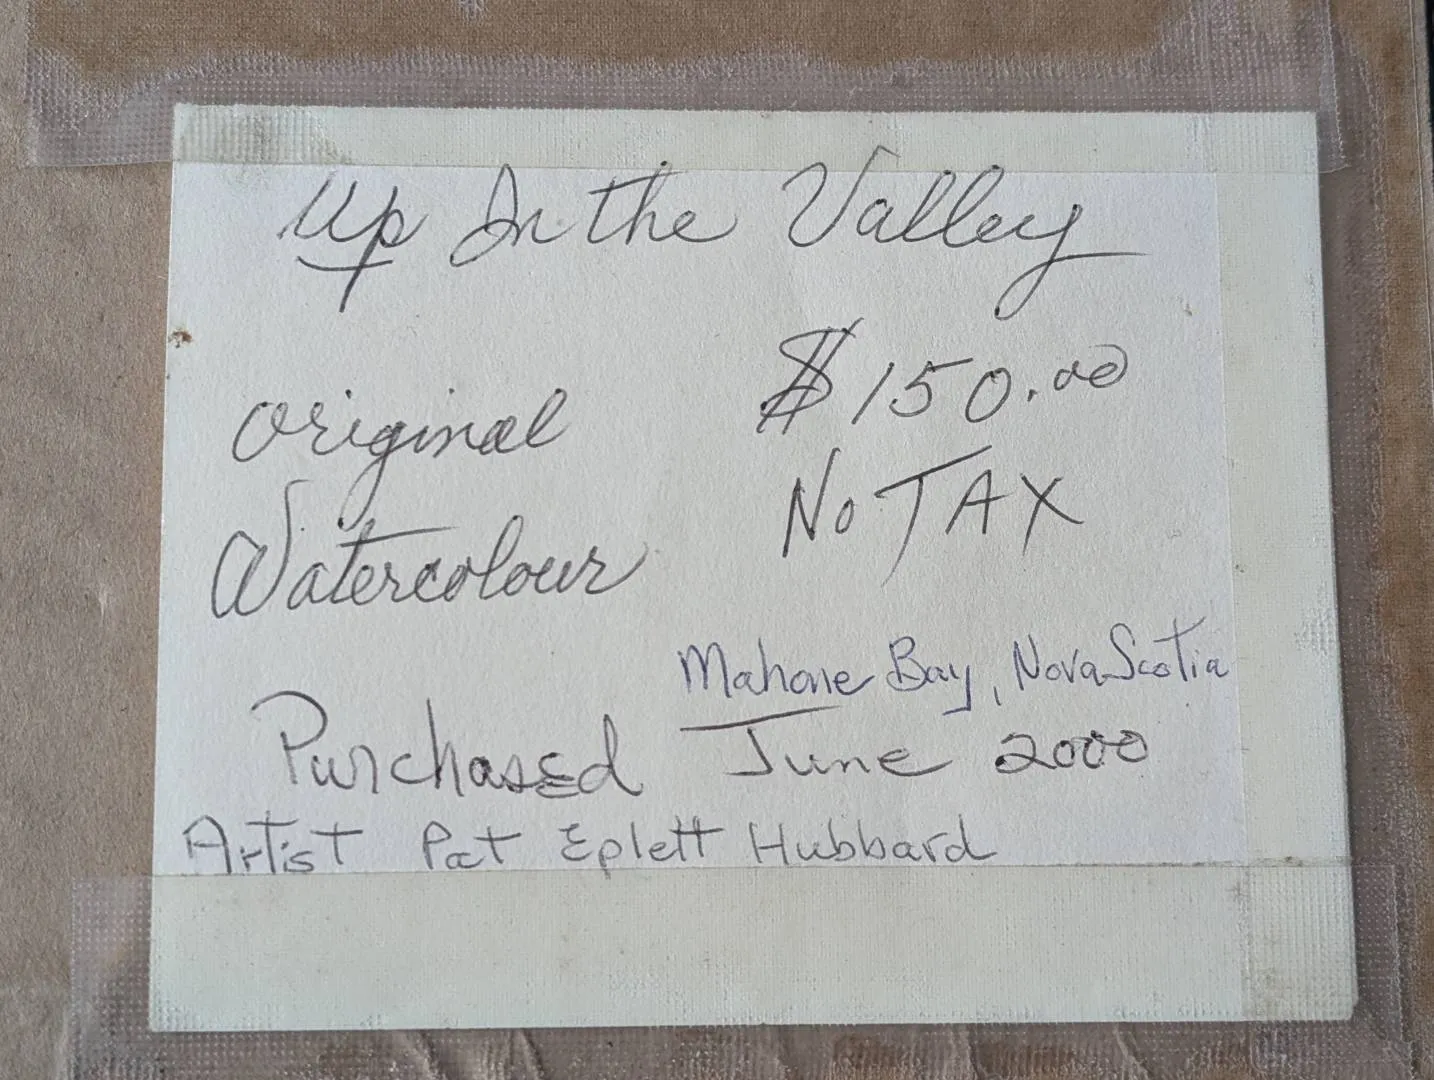 Up In the Valley
$150.00
Original
No TAX
Watercolour
Mahone Bay, Nova Scotia
Purchased June 2000
Artist Pat Eplett Hubbard